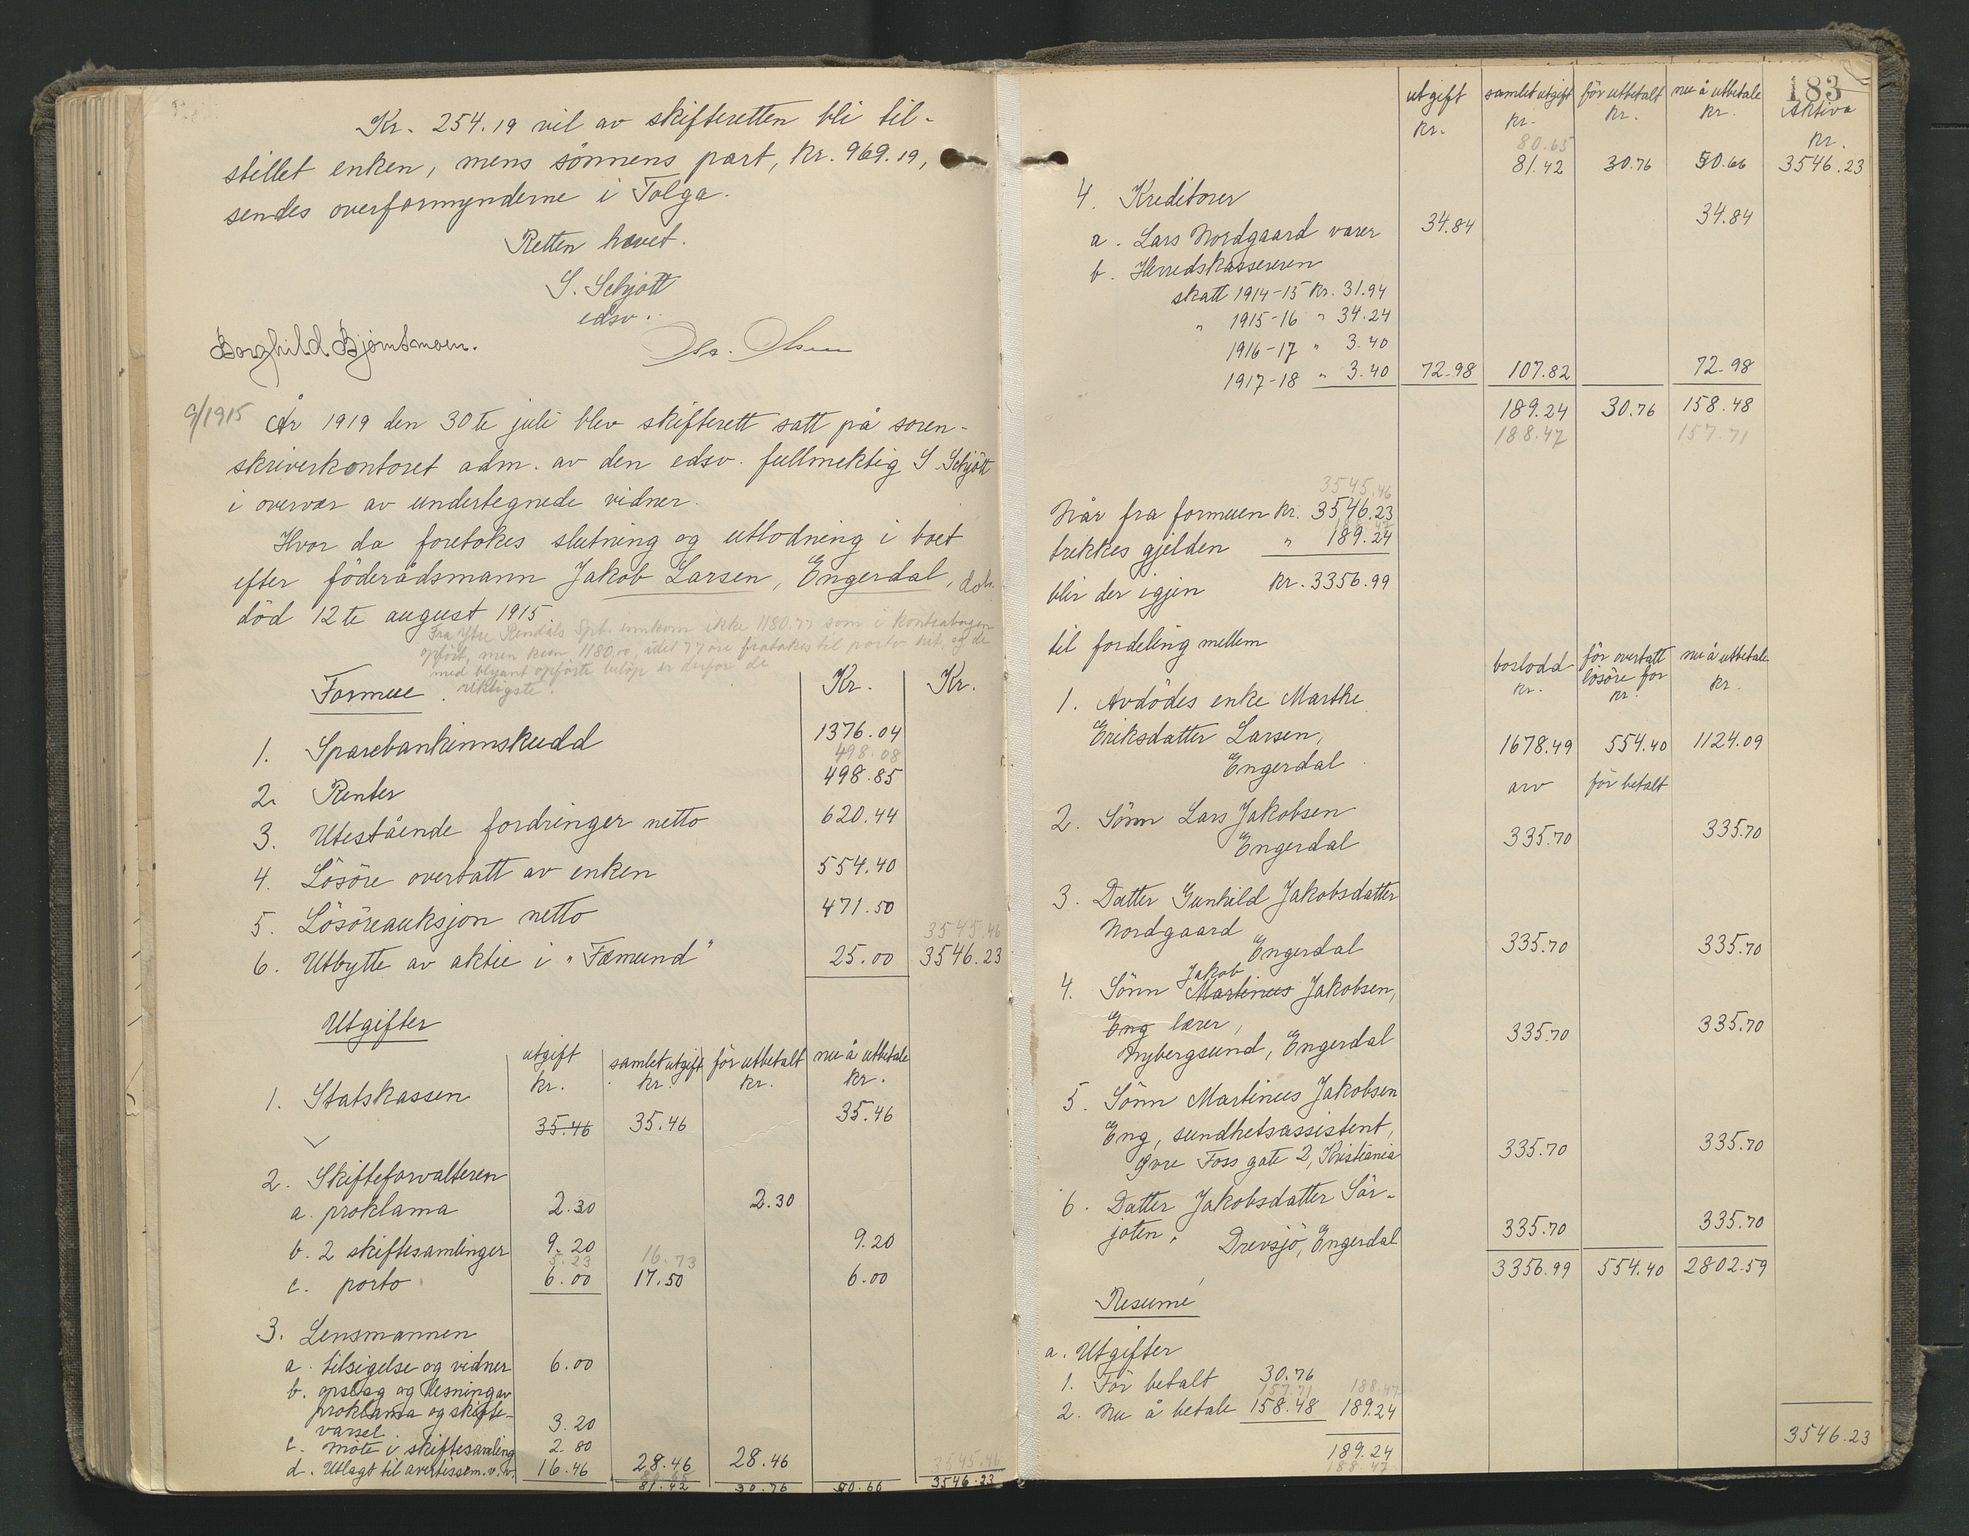 Kr. 254.19 vil av skifteretten bli til-
stillet enken, mens sønnens part, kr. 969.19,
sendes overformynderne i Tolga.
Retten hævet.
S. Schjøtt
edsv.
Borghild Bjørnsmoen. Olsen
9/1915 År 1919 den 30te juli blev skifterett satt på soren-
skriverkontoret adm. av den edsv. fullmektig S. Schjøtt
i overvær av undertegnede vidner.
Hvor da foretokes slutning og utlodning i boet
efter föderådsmann Jakob Larsen, Engerdal,
död 12te august 1915.
Fra Ytre Rendals Spb. innkom ikke 1180.77 som i kontrabogen
opført, men kun 1180,00, idet 77 øre fratokes til porto , og de
med blyant opførte beløp er derfor de
riktigste.
Formue. Kr. Kr.
1. Sparebankinnskudd 1376.04
498.08
2. Renter 498.85
3. Utestående fordringer netto 620.44
4. Lösöre overtatt av enken 554.40
5. Lösöreauksjon netto 471.50
3545.46
6. Utbytte av aktie i "Fæmund" 25.00 3546.23
Utgifter
utgift kr. samlet utgift kr. för utbetalt kr. nu å utbetale kr.
1. Statskassen 35.46 35.46 35.46
2. Skifteforvalteren
a. proklama 2.30 2.30
b. 2 skiftesamlinger 9.20 9.20
5.23 16.73
c. porto 6.00 17.50 6.00
3. Lensmannen
a. tilsigelse og vidner 6.00
b. opslag og læsning av
proklama og skifte-
varsel 3.20
c. möte i skiftesamling 2.80
d. Utlagt til avertissem. v.v. 16.46 28.46 28.46 3545.46
81.42 30.76 50.66 3546.23
183
utgift kr. samlet utgift kr. för utbetalt kr. nu å utbetale kr. Aktiva kr.
80.65
81.42 30.76 50.66 3546.23
4. Kreditorer
a. Lars Nordgaard varer 34.84 34.84
b. Herredskassereren
skatt 1914-15 kr. 31.94
" 1915-16 " 34.24
1916-17 " 3.40
1917-18 " 3.40 72.98 107.82 72.98
189.24 30.76 158.48
188.47 157.71
3545.46
Når fra formuen kr. 3546.23
188.47
trekkes gjelden " 189.24
blir der igjen kr. 3356.99
til fordeling mellem
boslodd kr. för overtatt lösöre for kr. nu å utbetale kr.
1. Avdödes enke Marthe
Eriksdatter Larsen,
Engerdal. 1678.49 554.40 1124.09
arv för betalt
2. Sönn Lars Jakobsen
Engerdal 335.70 335.70
3. Datter Gunhild Jakobsdatter
Nordgaard
Engerdal 335.70 335.70
Jakob
4. Sönn Martinus Jakobsen,
Eng lærer,
Nybergsund, Engerdal 335.70 335.70
5. Sönn Martinus Jakobsen
Eng, sundhetsassistent,
Øvre Foss gate 2, Kristiania 335.70 335.70
6. Datter Jakobsdatter Sör-
joten,
Drevsjö, Engerdal 335.70 335.70
3356.99 554.40 2802.59
Resumé
a. Utgifter
1. För betalt 30.76
157.71 188.47
2. Nu å betale 158.48 189.24
189.24 3546.23
188.47